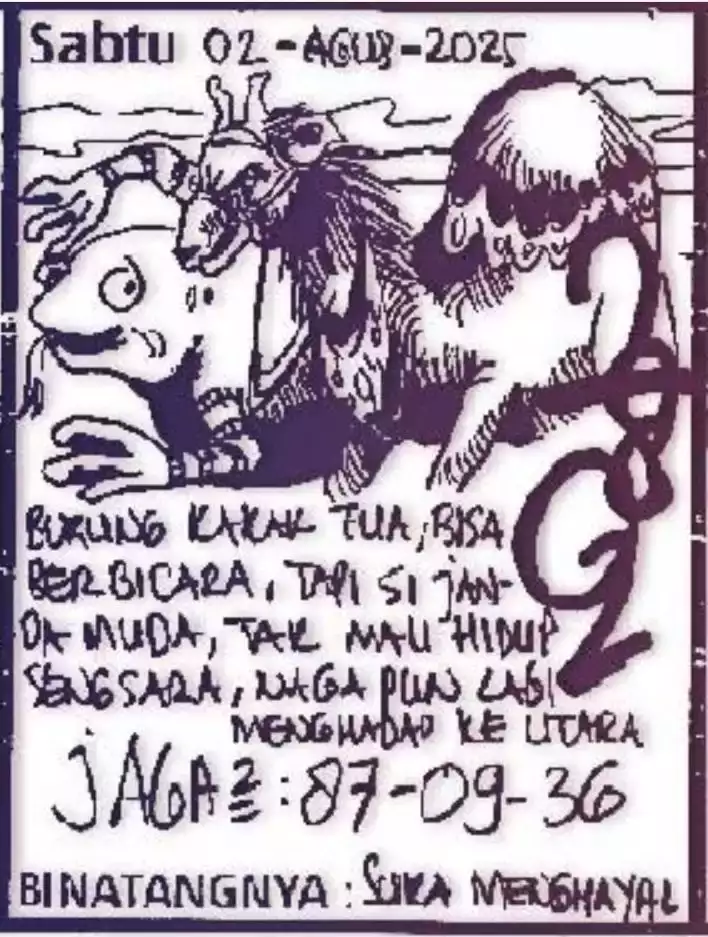 Sabtu 02-AGUS-2025
BURUNG KAKAK TUA, BISA
BERBICARA, TAPI SI JAN-
DA MUDA, TAK MAU HIDUP
SENGSARA, NAGA PUN LAGI
MENGHADAP KE UTARA
JAGA2 : 87-09-36
BINATANGNYA : SUKA MENGHAYAL